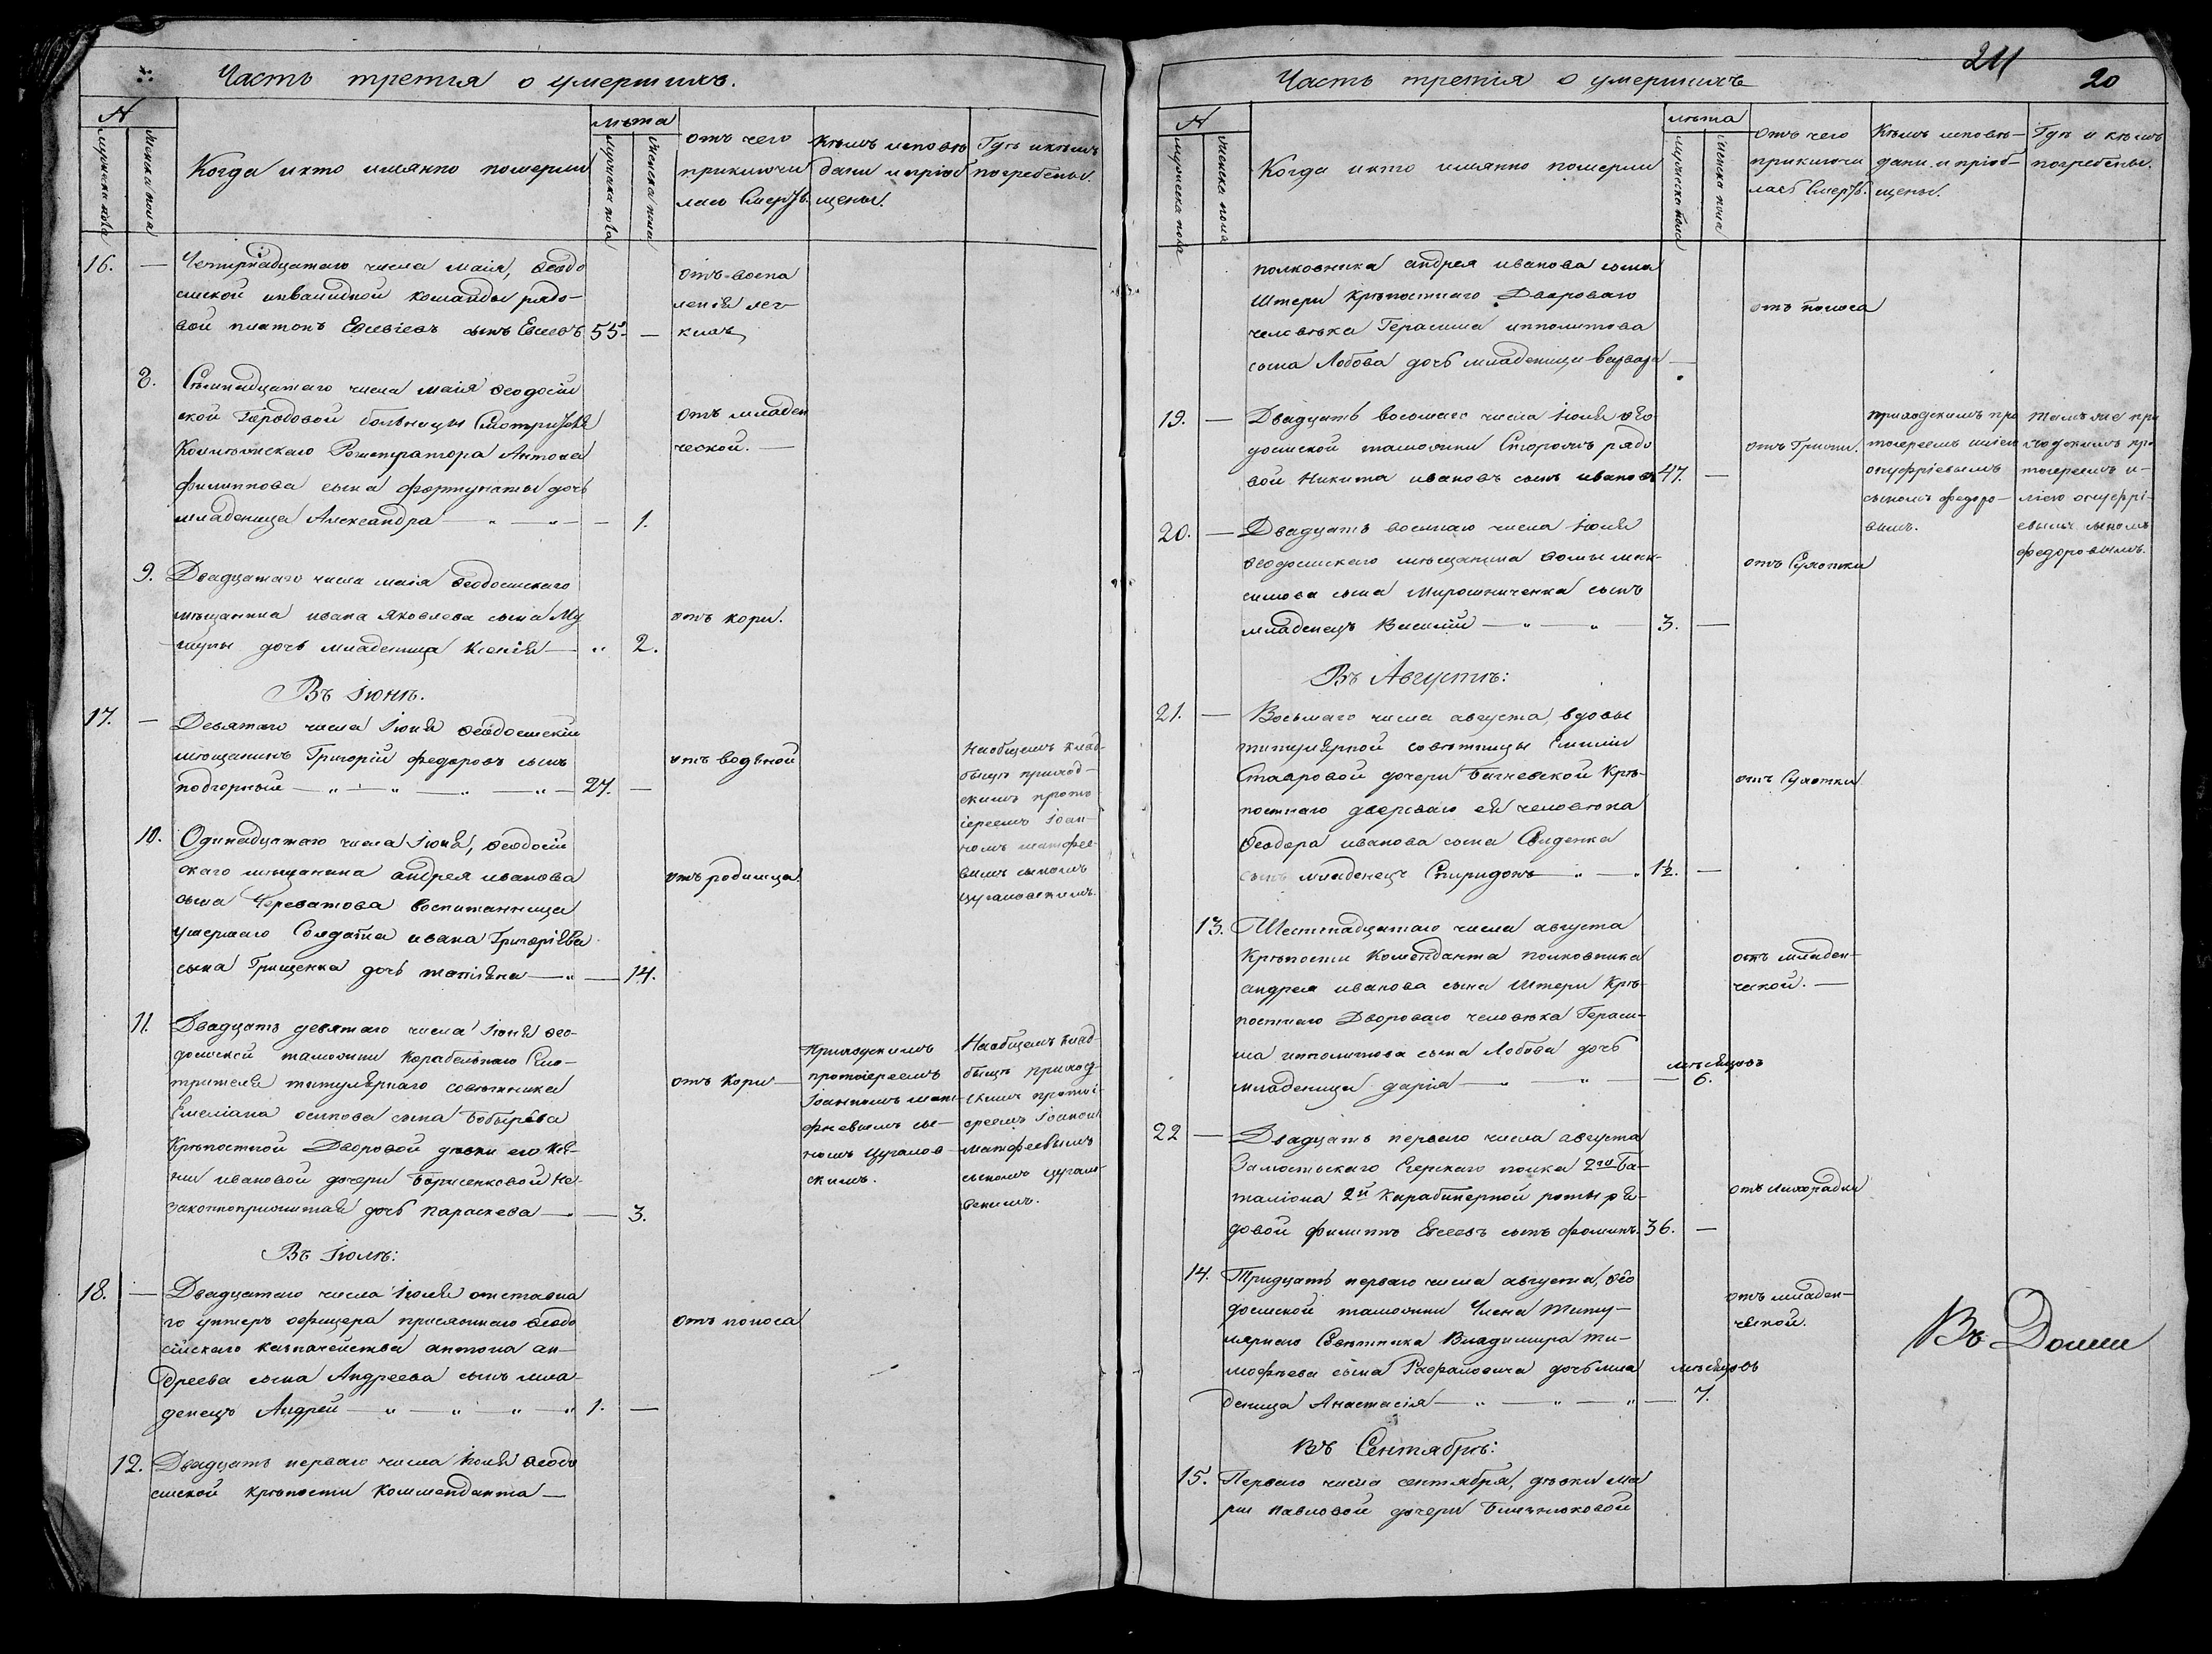 Часть третія о умершихъ.
№
мужеска пола
женска пола
Когда икто имянно померли
лѣта
мужеска пола
женска пола
отъ чего
приключи
лась Смерть.
Кѣмъ исповѣ
дани и пріоб
щены.
Гдѣ икѣмъ
погребены.
16. — Четырнадцатаго числа маія, Ѳеодо
сійской инвалидной команды рядо-
вой платонъ Евсевіевъ сынъ Евсеевъ 55 —
отъ воспа
ленія лег
кихъ
8. Семнадцатаго числа маія Ѳеодосій
ской Городовой больницы Смотрителя
Коллежскаго Регистратора Антона
филиппова сына фортунаты дочь
младеница Александра — 1.
отъ младен
ческой. —
9. Двадцатаго числа маія Ѳеодосійскаго
мѣщанина ивана Яковлева сына
дочь младеница Ксенія — 2.
отъ кори.
Въ Іюнѣ.
17. — Девятаго числа Іюня Ѳеодосійскій
мѣщанинъ Григорій федоровъ сынъ
подгорный — 27. —
отъ водяной
Наобщемъ клад-
бищѣ приход-
скимъ прото
іереемъ Іоан-
номъ матфее-
вымъ сыномъ
цугаловскимъ.
10. Одинадцатаго числа Іюня, Ѳеодосій
скаго мѣщанина андрея иванова
сына Череватова воспитанница
умершаго Солдата ивана Григоріева
сына Грищенка дочь татіяна — 14.
отъ родимца.
11. Двадцать девятаго числа Іюня Ѳео-
досійской таможни Корабельнаго Смо-
трителя титулярнаго совѣтника
Емеліана осипова сына Бобырева
Крѣпостной Дворовой дѣвки его Ксе-
ніи ивановой дочери Борисенковой не-
законноприжитая дочь параскева — 3.
отъ Кори —
Приходскимъ
протоіереемъ
Іоанномъ мат-
фѣевымъ сы-
номъ цугалов-
скимъ.
Наобщемъ клад-
бищѣ приход
скимъ протоі-
ереемъ Іоанном
матфеевымъ
сыномъ цугало-
вскимъ.
Въ Іюлѣ:
18. — Двадцатаго числа Іюля отставна
го унтеръ офицера присяжнаго Ѳеодо
сійскаго казначейства антона ан-
дреева сына Андреева сынъ мла-
денецъ Андрей — 1. —
отъ поноса
12. Двадцать перваго числа Іюля Ѳеодо
сійской крѣпости Коммендатна —
211
20
Часть третія о умершихъ
№
мужеска пола
женска пола
Когда икто имянно померли
лѣта
мужеска пола
женска пола
Отъ чего
приключи
лась Смерть.
Кѣмъ исповѣ-
дани и пріоб-
щены.
Гдѣ и кѣмъ
погребены.
полковника андрея иванова сына
Штери крѣпостнаго Двороваго
человѣка Герасима ипполитова
сына Лобова дочь младеница варвара —
отъ поноса
19. — Двадцать восьмаго числа Іюля Ѳео
досійской таможни Сторожъ рядо
вой Никита ивановъ сынъ ивановъ 47. —
отъ Грижи.
приходскимъ про
тоіереемъ
онуфріевымъ
сыномъ федоро-
вымъ.
тамъ же при
ходскимъ про
тоіереемъ и-
онуфрі-
евымъ сыномъ
федоровымъ.
20. — Двадцать восьмаго числа Іюля
Ѳеодосійскаго мѣщанина Ѳомы мак-
симова сына Мирошниченка сынъ
младенецъ Василій — 3. —
отъ Сухотки
Въ Августѣ:
21. — Восьмаго числа августа, вдовы
титулярной совѣтницы Емиліи
Ставровой дочери Багневской Крѣ-
постнаго двороваго ея человѣка
Ѳеодора иванова сына Свиденка
сынъ младенецъ Спиридонъ — 1½. —
отъ Сухотки
13. Шестнадцатаго числа августа
Крѣпости Коменданта полковника
андрея иванова сына Штери Крѣ-
постнаго Двороваго человѣка Гераси-
ма ипполитова сына Лобова дочь
младеница дарія — мѣсяцовъ
6.
отъ младен-
ческой. —
22 — Двадцать перваго числа августа
Замостьскаго Егерскаго полка 2го Ба-
таліона 2й Карабинерной роты ря-
довой филиппъ Евсеевъ сынъ фоминъ. 36. —
отъ лихорадки
14. Тридцать перваго числа августа, Ѳео
досійской таможни Члена титу-
лярнаго Совѣтника Владимира ти-
мофѣева сына Рафаловича дочь мла
деница Анастасія — мѣсяцовъ
7.
отъ младен-
ческой.
Въ Сентябрѣ:
15. Перваго числа сентября, дѣвки Ма
ріи павловой дочери